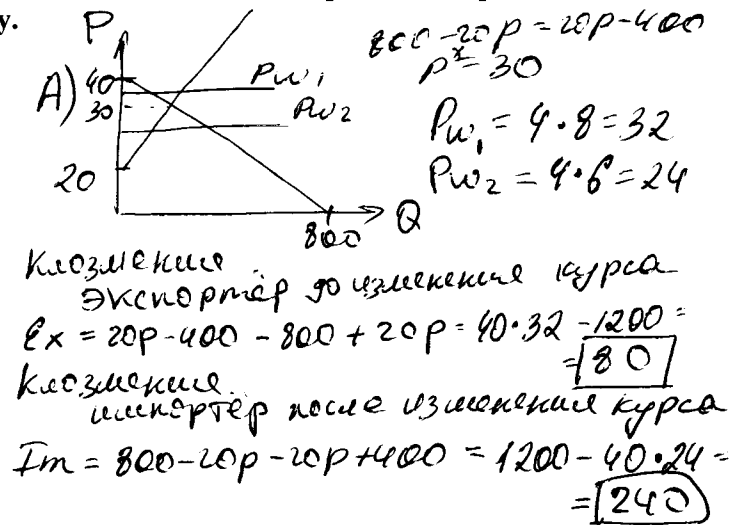 у.
P
800 - 20p = 20p - 400
p* = 30
А) 40
30
20
Pw₁
Pw₂
800
Q
Pw₁ = 4 · 8 = 32
Pw₂ = 4 · 6 = 24
Клозмения
экспортёр до изменения курса
Ex = 20p - 400 - 800 + 20p = 40 · 32 - 1200 =
= 80
Клозмения
импортёр после изменения курса
Im = 800 - 20p - 20p + 400 = 1200 - 40 · 24 =
= 240